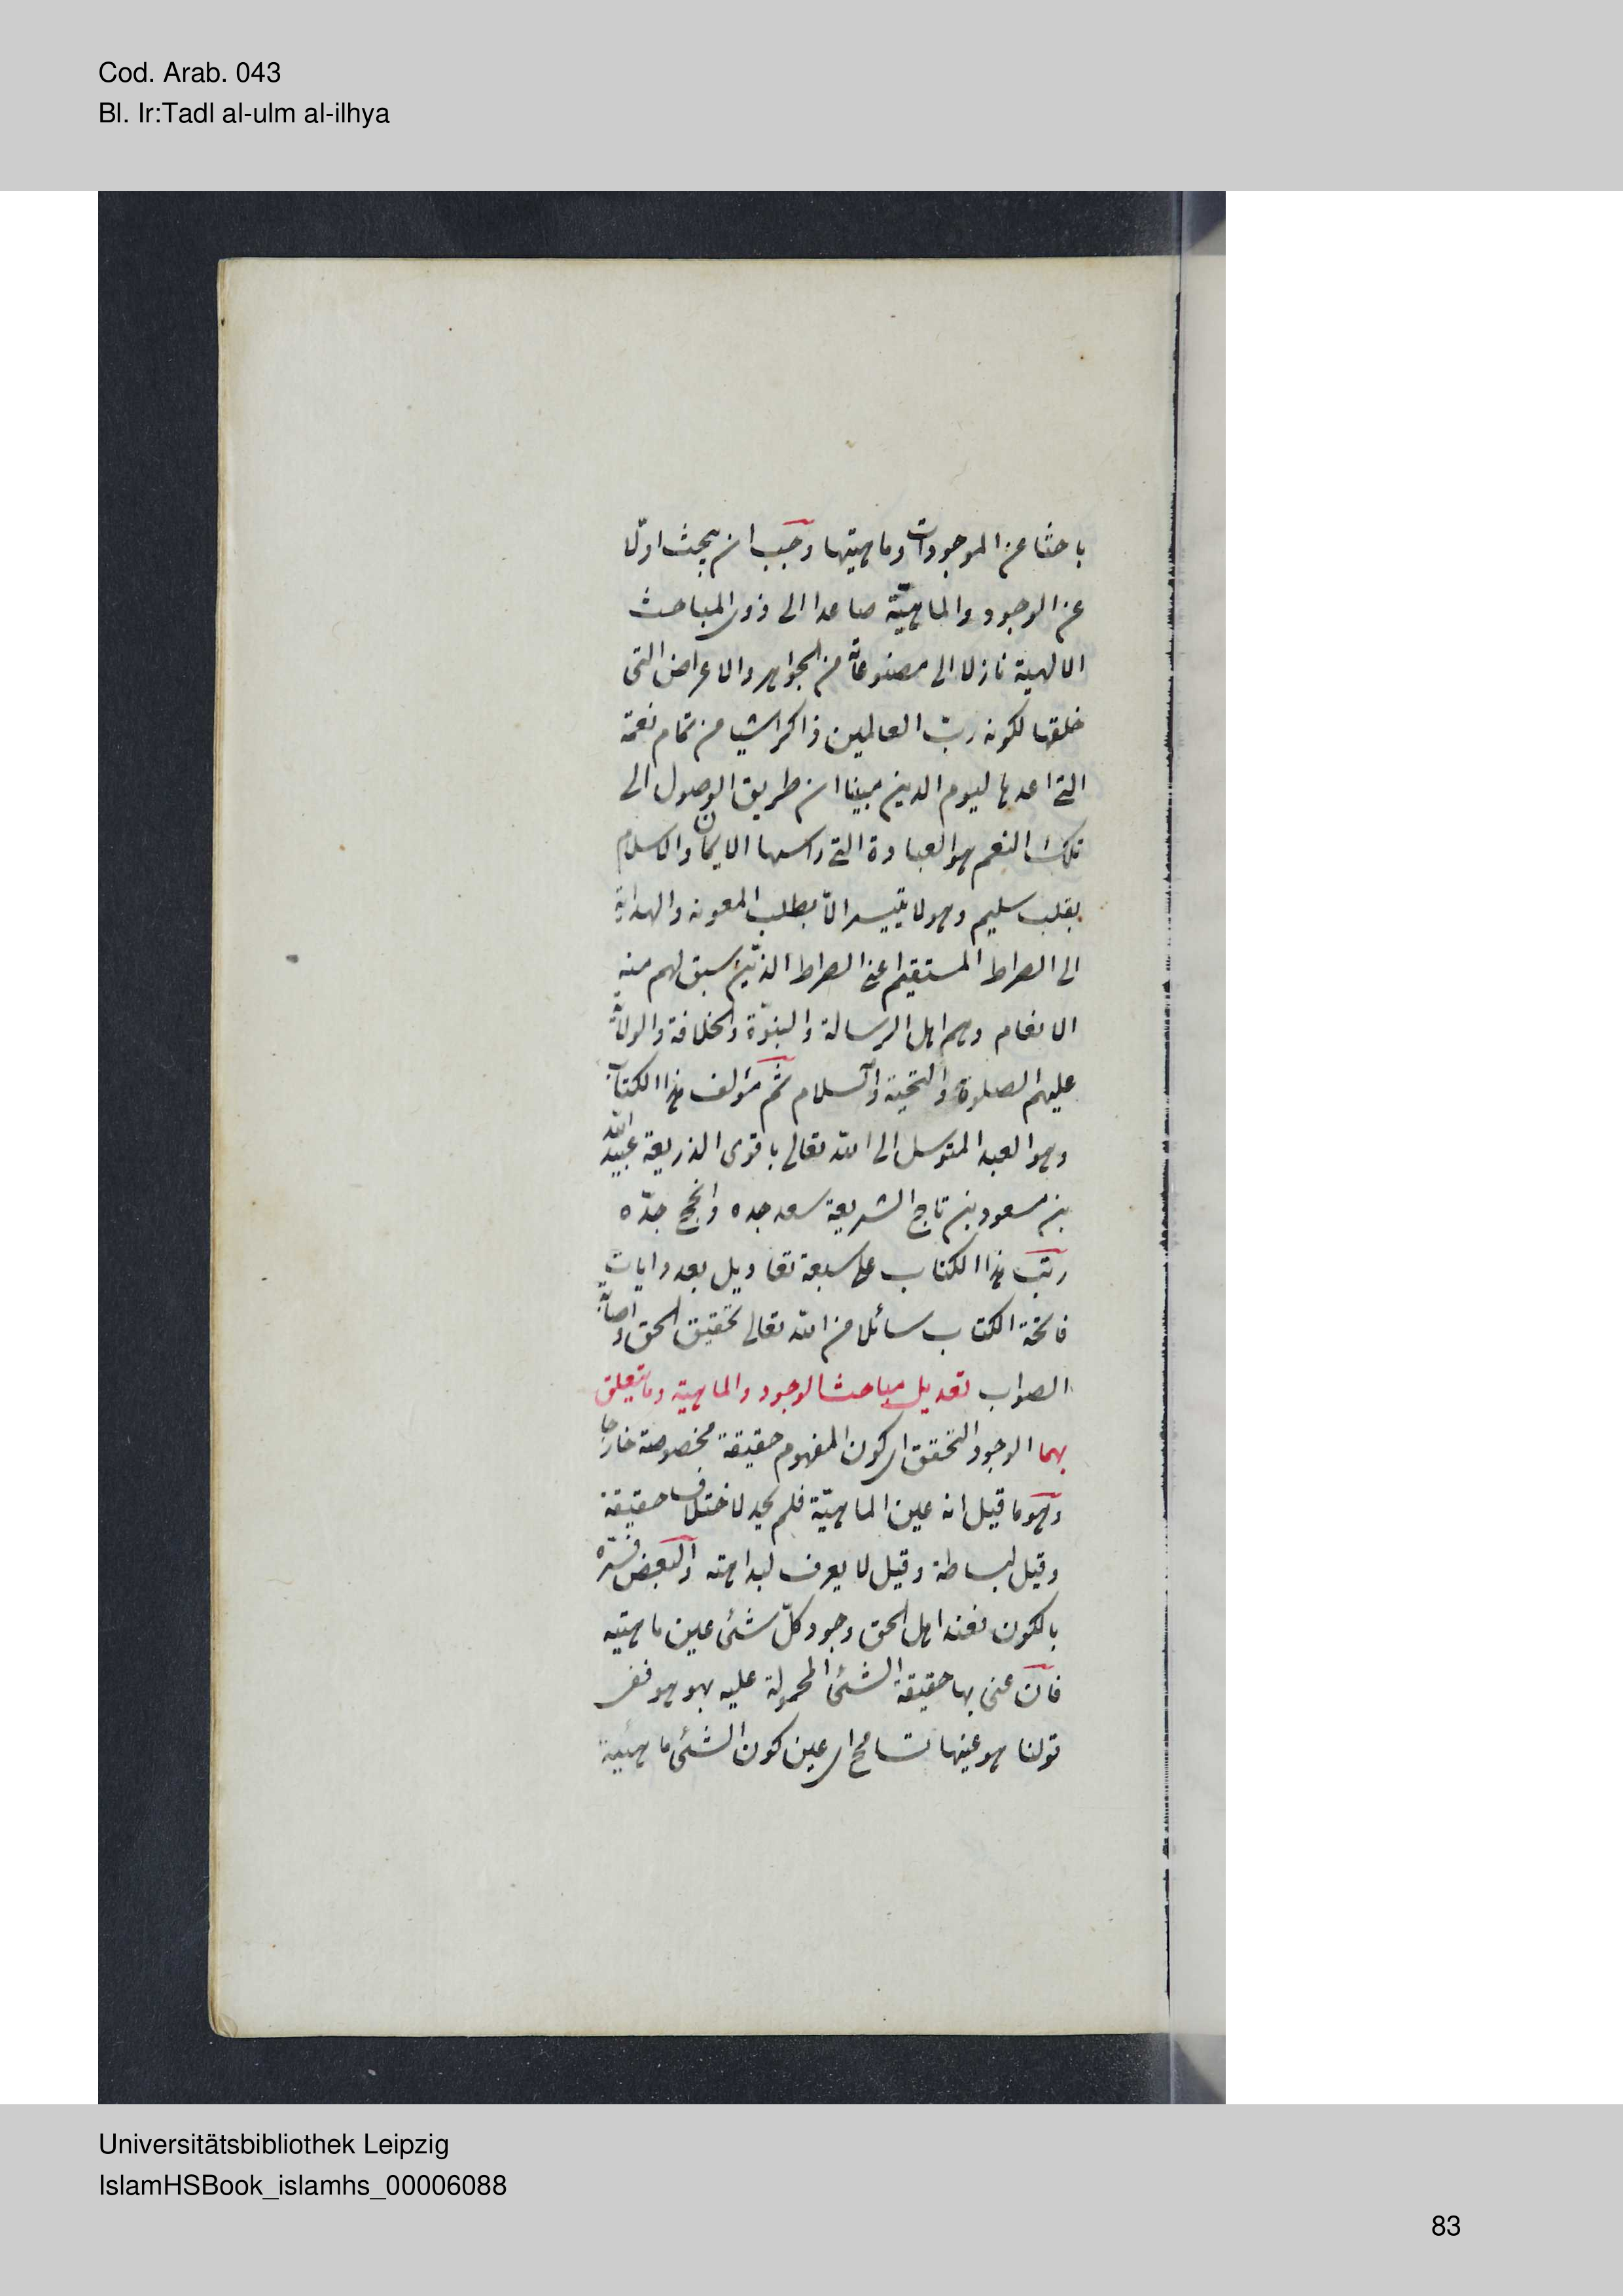 Cod. Arab. 043
Bl. Ir:Tadl al-ulm al-ilhya
باحثا عن الموجودات وماهيتها وجب ان يبحث اولا
عن الوجود والماهيّة صاعدا الى ذوى المباحث
الالهية نازلا الى مصنوعاته من الجواهر والاعراض التى
خلقها لكونه ربّ العالمين ذاكرا شيا من تمام نعمه
التى اعدها ليوم الدين مبينا ان طريق الوصول الى
تلك النعم هو العبادة التى راسها الايمان والاسلام
بقلب سليم وهو لا يتيسر الاّ بطلب المعونه والهداية
الى الصراط المستقيم اعنى الصراط الذين سبق لهم منه
الانعام وهم اهل الرسالة والنبوّة والخلافة والولاية
عليهم الصلوة والتحية والسلام ثم مؤلف هذا الكتاب
وهو العبد المتوسل الى الله تعالى باقوى الذريعة عبيد الله
بن مسعود بن تاج الشريعة سعد جده وانجح جدّه
رتب هذا الكتاب على سبعة تعاديل بعدد ايات
فاتحة الكتاب سائلا من الله تعالى تحقيق الحق واصابة
الصواب تعديل مباحث الوجود والماهية وما يتعلق
بهما الوجود التحقق اى كون المفهوم حقيقة مخصوصة خارجا
وهو ما قيل انه عين الماهيّة فلم يحد لاختلاف حقيقة
وقيل لبساطة وقيل لا يعرف لبداهته والبعض فسّره
بالكون فعند اهل الحق وجود كلّ شئ عين ماهيته
فان عنى بها حقيقة الشئ المحمولة عليه بهو هو ففى
قولنا هو عينها تسامح اى عين كون الشئ ماهيته
Universitätsbibliothek Leipzig
IslamHSBook_islamhs_00006088
83